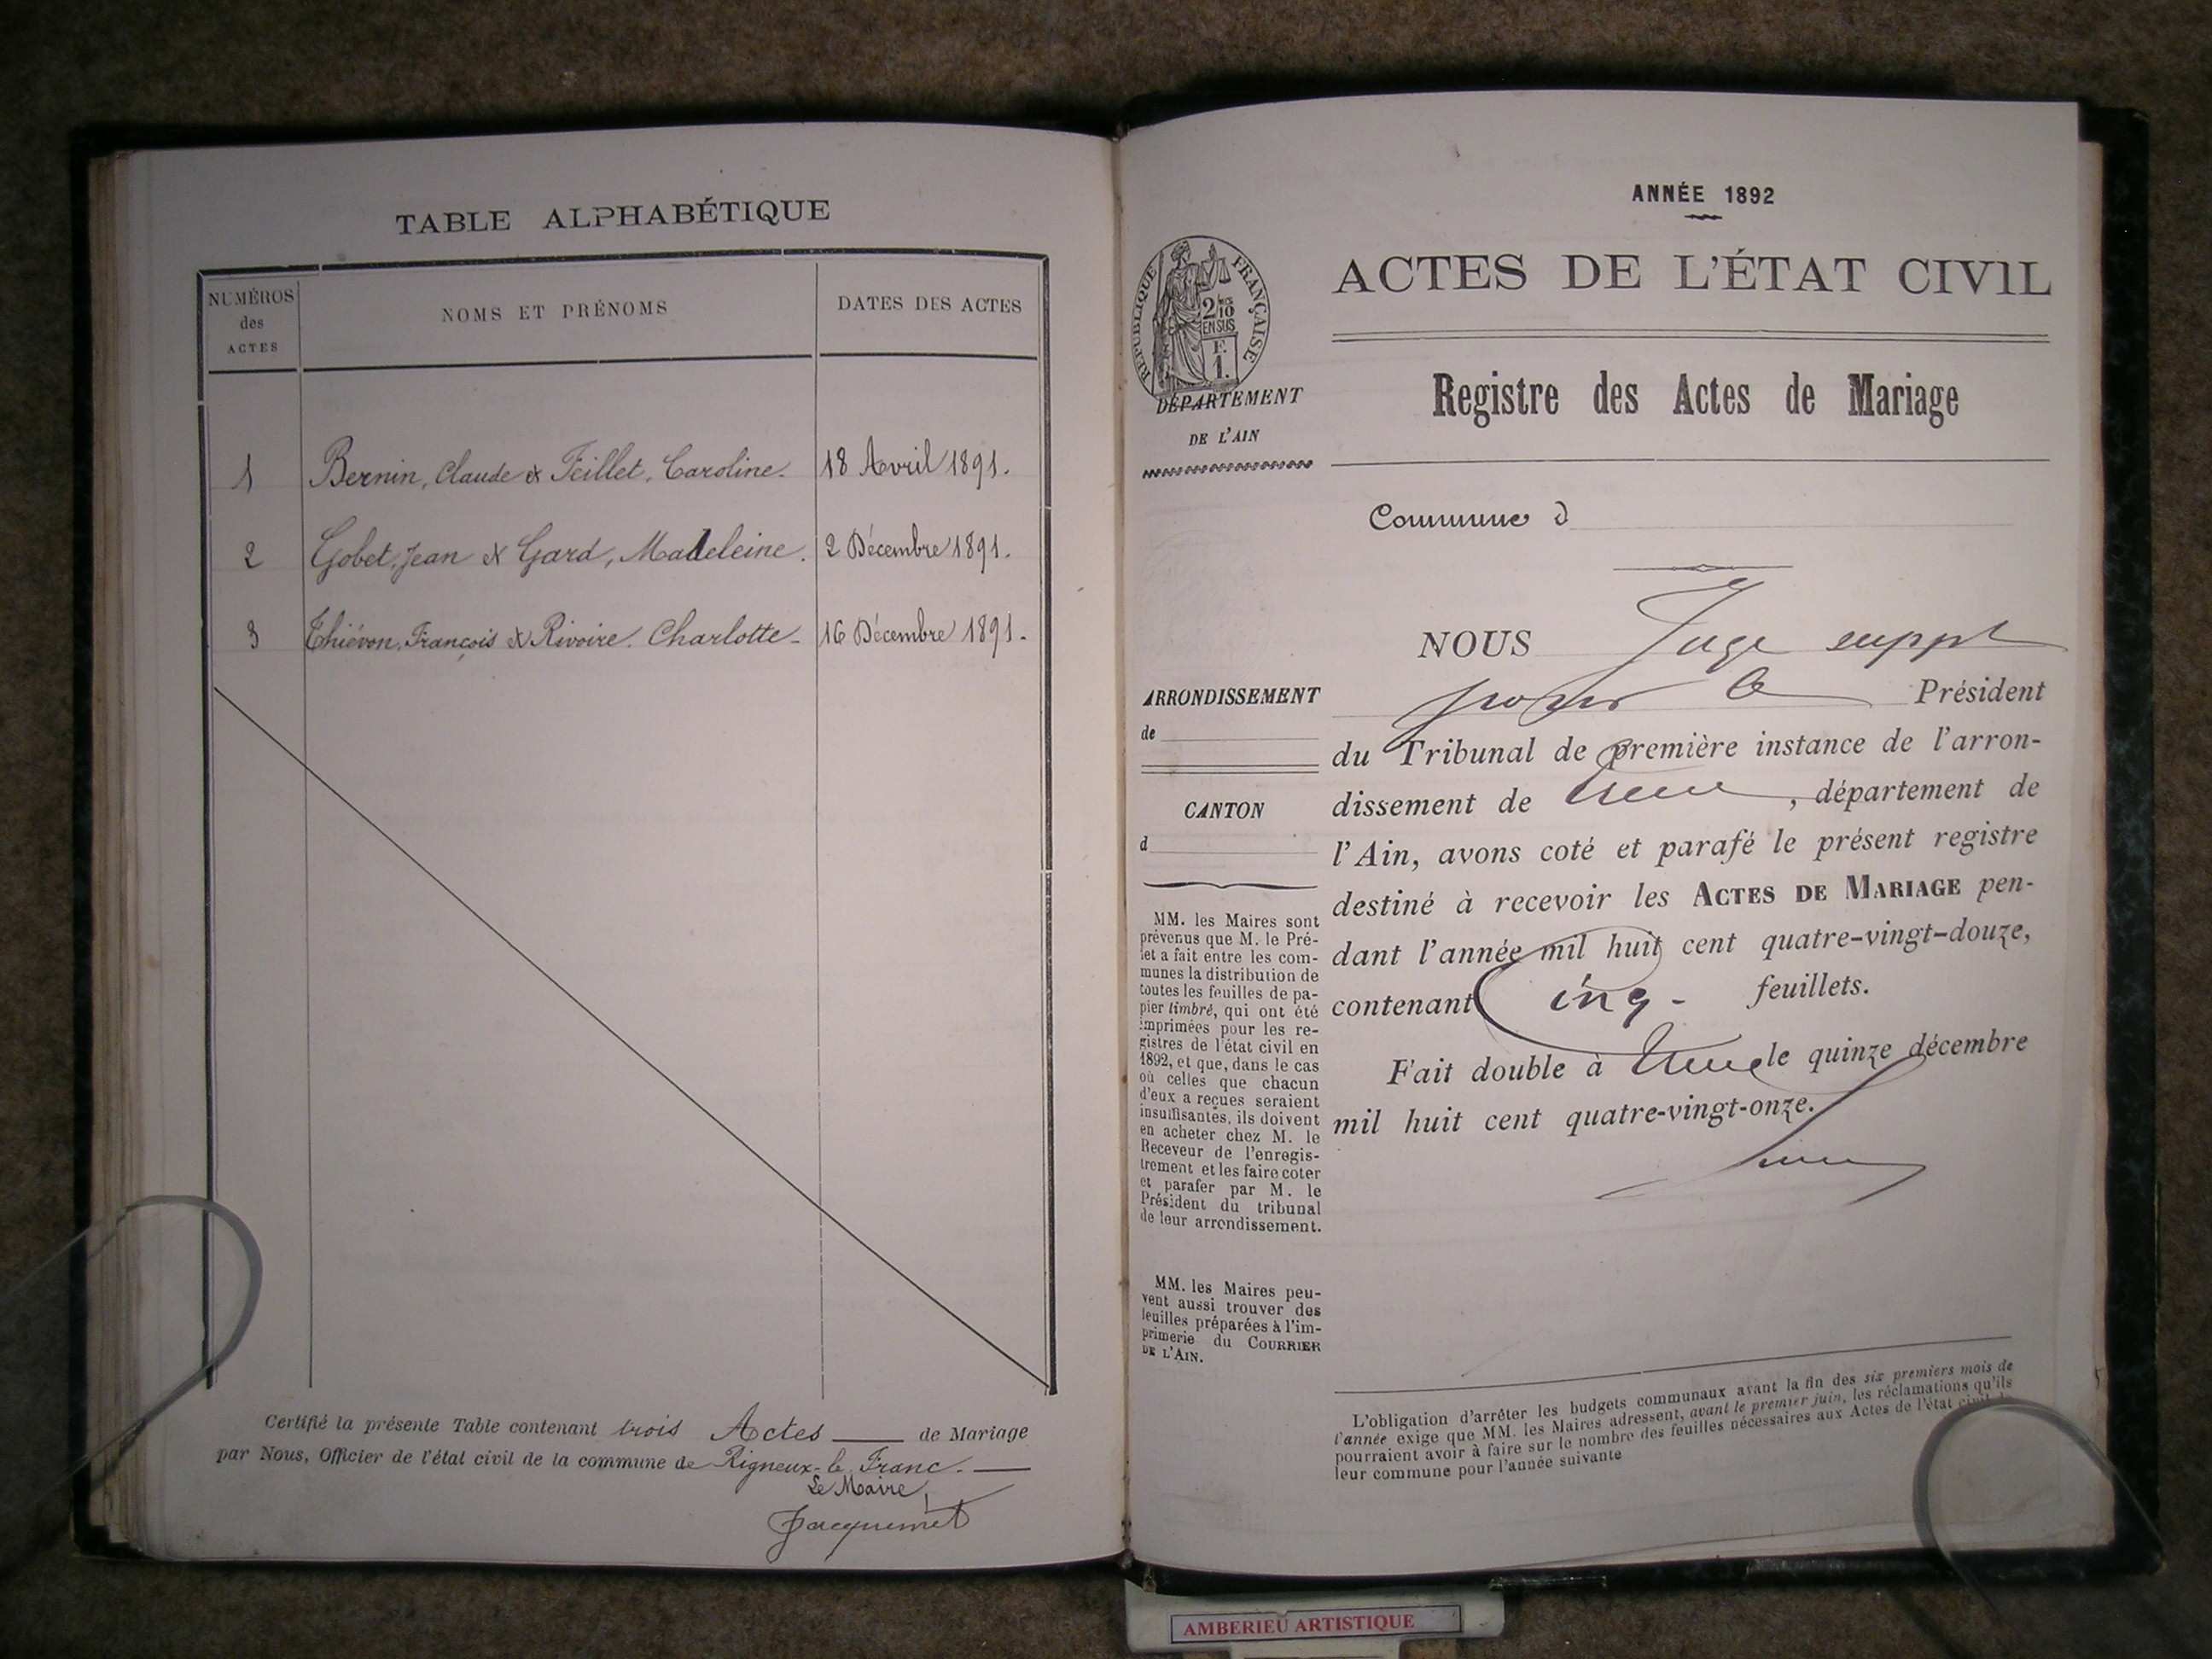 TABLE ALPHABÉTIQUE
NUMÉROS
des
ACTES
NOMS ET PRÉNOMS
DATES DES ACTES
1 Bernin, Claude & Feillet, Caroline. 18 Avril 1891.
2 Gobet, Jean & Gard, Madeleine. 2 Décembre 1891.
3 Thiévon, François & Rivoire, Charlotte 16 Décembre 1891.
Certifié la présente Table contenant trois Actes de Mariage
par Nous, Officier de l'état civil de la commune de Rigneux-le-Franc.
Le Maire,
Jacquemet
ANNÉE 1892
RÉPUBLIQUE FRANÇAISE
2/10
EN SUS
F.
1.
ACTES DE L'ÉTAT CIVIL
DÉPARTEMENT
DE L'AIN
Registre des Actes de Mariage
Commune d
NOUS Juge suppt
pour le Président
du Tribunal de première instance de l'arron-
dissement de , département de
l'Ain, avons coté et parafé le présent registre
destiné à recevoir les ACTES DE MARIAGE pen-
dant l'année mil huit cent quatre-vingt-douze,
contenant Cinq feuillets.
Fait double à le quinze décembre
mil huit cent quatre-vingt-onze.
ARRONDISSEMENT
de
CANTON
d
MM. les Maires sont
prévenus que M. le Pré-
fet a fait entre les com-
munes la distribution de
toutes les feuilles de pa-
pier timbré, qui ont été
imprimées pour les re-
gistres de l'état civil en
1892, et que, dans le cas
où celles que chacun
d'eux a reçues seraient
insuffisantes, ils doivent
en acheter chez M. le
Receveur de l'enregis-
trement et les faire coter
et parafer par M. le
Président du tribunal
de leur arrondissement.
MM. les Maires peu-
vent aussi trouver des
feuilles préparées à l'im-
primerie du COURRIER
DE L'AIN.
L'obligation d'arrêter les budgets communaux avant la fin des six premiers mois de
l'année exige que MM. les Maires adressent, avant le premier juin, les réclamations qu'ils
pourraient avoir à faire sur le nombre des feuilles nécessaires aux Actes de l'état civil
leur commune pour l'année suivante
AMBERIEU ARTISTIQUE